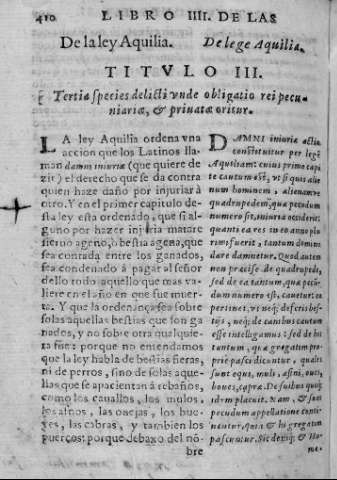 410 LIBRO IIII. DE LAS
De la ley Aquilia.
De lege Aquilia.
TITVLO III.
Tertia species delicti vnde obligatio rei pecu-
niariæ, & priuatæ oritur.
LA ley Aquilia ordena vna
accion que los Latinos lla-
man damni iniuriæ (que quiere de
zir) el derecho que se da contra
quien haze daño por injuriar à
otro. Y en el primer capitulo de-
sta ley esta ordenado, que si al-
guno por hazer injuria matare
sieruo ageno, o bestia agena, que
sea contada entre los ganados,
sea condenado à pagar al señor
dello todo aquello que mas va-
liere en el año en que fue muer-
ta. Y que la ordenança sea sobre
solas aquellas bestias que son ga-
nados, y no sobre otra qualquie-
ra fue: porque no entendamos
que la ley habla de bestias fieras,
ni de perros, sino de solas aque-
llas que se apacientan à rebaños,
como los cauallos, los mulos,
los asnos, las ouejas, los bue-
yes, las cabras, y tambien los
puercos: porque debaxo del nõ-
bre
DAMNI iniuriæ actio
constituitur per legẽ
Aquiliam: cuius prime capi
te cautum est, vt si quis alie
num hominem, alienamve
quadrupedem, quæ pecudum
numero sit, iniuria occiderit:
quanti ea res in eo anno plu
rimi fuerit, tantum domino
dare damnetur. Quod autem
non præcise de quadrupede,
sed de ea tantum, quæ pecu-
dum numero est, cauetur, eò
pertinet, vt neq; de feris bes-
tijs, neq; de canibus cautum
esse intelligamus: sed de his
tantum, quæ gregatim pro-
priè pasci dicuntur, quales
sunt equi, muli, asini, oues,
boues, capræ. De suibus quoq;
idem placuit. Nam, & sues
pecudum appellatione conti-
nentur, quia & hi gregatim
pascuntur. Sic deniq; & Ho-
me-